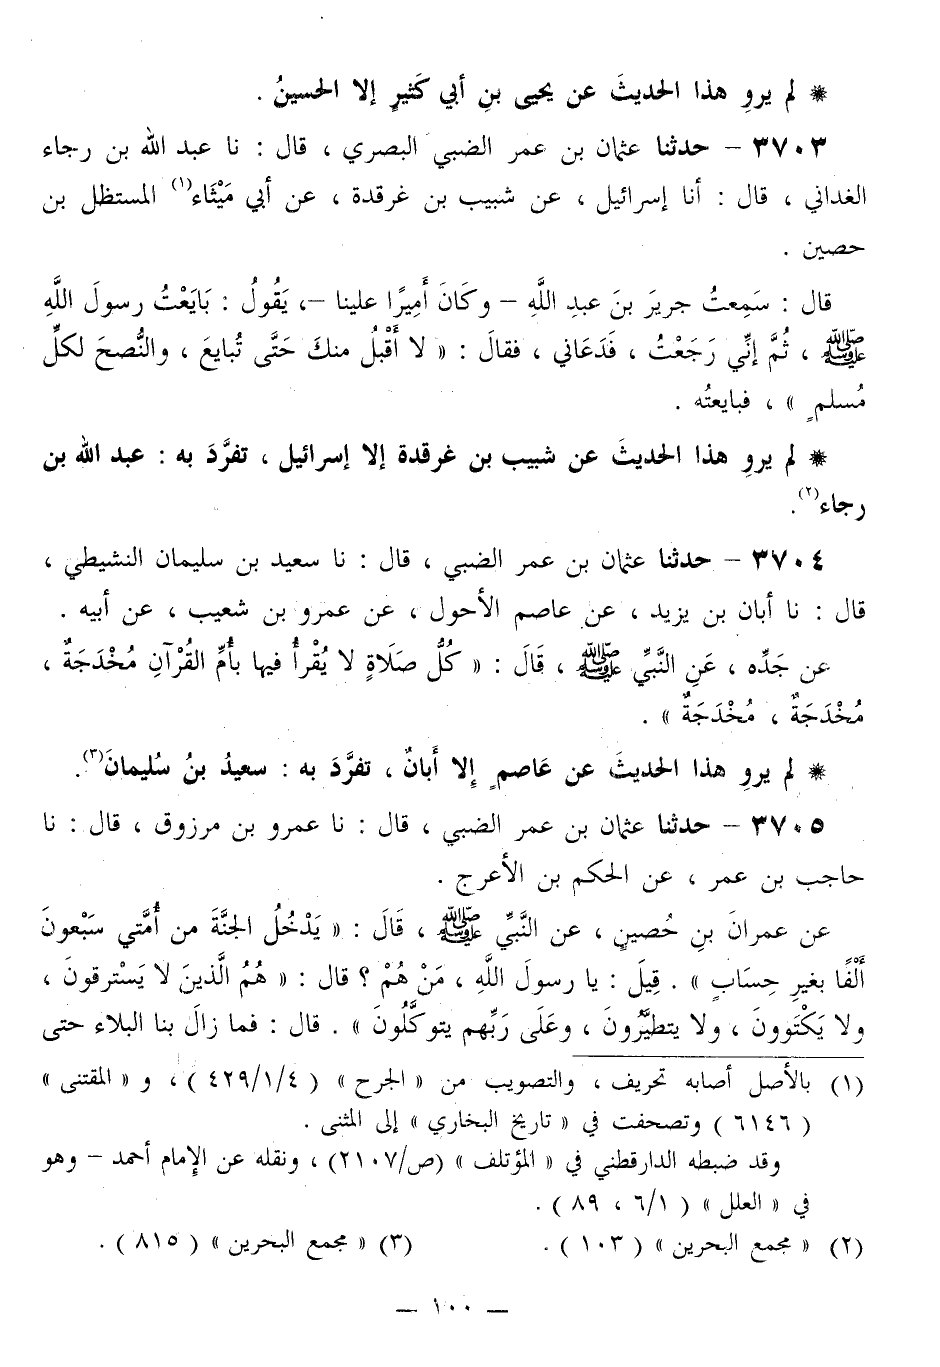 * لم يروِ هذا الحديثَ عن يحيى بنِ أبي كَثيرٍ إلا الحسينُ .
٣٧٠٣ – حدثنا عثمان بن عمر الضبي البصري ، قال : نا عبد الله بن رجاء
الغداني ، قال : أنا إسرائيل ، عن شبيب بن غرقدة ، عن أبي مَيْثَاء(١) المستظل بن
حصين .
قال : سَمِعتُ جريرَ بنَ عبدِ اللَّهِ – وكَانَ أَمِيرًا علينا –، يَقُولُ : بَايَعْتُ رسولَ اللَّهِ
ﷺ ، ثُمَّ إنِّي رَجَعْتُ ، فَدَعَاني ، فقالَ : « لا أَقْبلُ منكَ حَتَّى تُبايعَ ، والنُّصحَ لكلِّ
مُسلمٍ » ، فبايعتُه .
* لم يروِ هذا الحديثَ عن شبيب بن غرقدة إلا إسرائيل ، تفرَّدَ به : عبد الله بن
رجاء(٢).
٣٧٠٤ – حدثنا عثمان بن عمر الضبي ، قال : نا سعيد بن سليمان النشيطي ،
قال : نا أبان بن يزيد ، عن عاصم الأحول ، عن عمرو بن شعيب ، عن أبيه .
عن جَدِّه ، عَنِ النَّبيِّ ﷺ ، قَالَ : « كُلُّ صَلَاةٍ لا يُقْرأُ فيها بأُمِّ القُرْآنِ مُخْدَجَةٌ ،
مُخْدَجَةٌ ، مُخْدَجَةٌ » .
* لم يروِ هذا الحديثَ عن عَاصمٍ إِلا أَبانٌ ، تفرَّدَ به : سعيدُ بنُ سُليمانَ(٣).
٣٧٠٥ – حدثنا عثمان بن عمر الضبي ، قال : نا عمرو بن مرزوق ، قال : نا
حاجب بن عمر ، عن الحكم بن الأعرج .
عن عمرانَ بنِ حُصينٍ ، عن النَّبيِّ ﷺ ، قَالَ : « يَدْخُلُ الجنَّةَ من أُمَّتي سَبْعونَ
أَلْفًا بغيرِ حِسَابٍ » . قِيلَ : يا رسولَ اللَّهِ ، مَنْ هُمْ ؟ قال : « هُمُ الَّذينَ لا يَسْترقونَ ،
ولا يَكْتَوونَ ، ولا يتطيَّرُونَ ، وعَلَى رَبِّهم يتوكَّلُونَ » . قال : فما زالَ بنا البلاء حتى
(١) بالأصل أصابه تحريف ، والتصويب من « الجرح » ( ٤٢٩/١/٤ ) ، و « المقتنى »
( ٦١٤٦ ) وتصحفت في « تاريخ البخاري » إلى المثنى .
وقد ضبطه الدارقطني في « المؤتلف » (ص/٢١٠٧) ، ونقله عن الإمام أحمد – وهو
في « العلل » ( ٦/١ ، ٨٩ ) .
(٢) « مجمع البحرين » ( ١٠٣ ) . (٣) « مجمع البحرين » ( ٨١٥ ) .
– ١٠٠ –